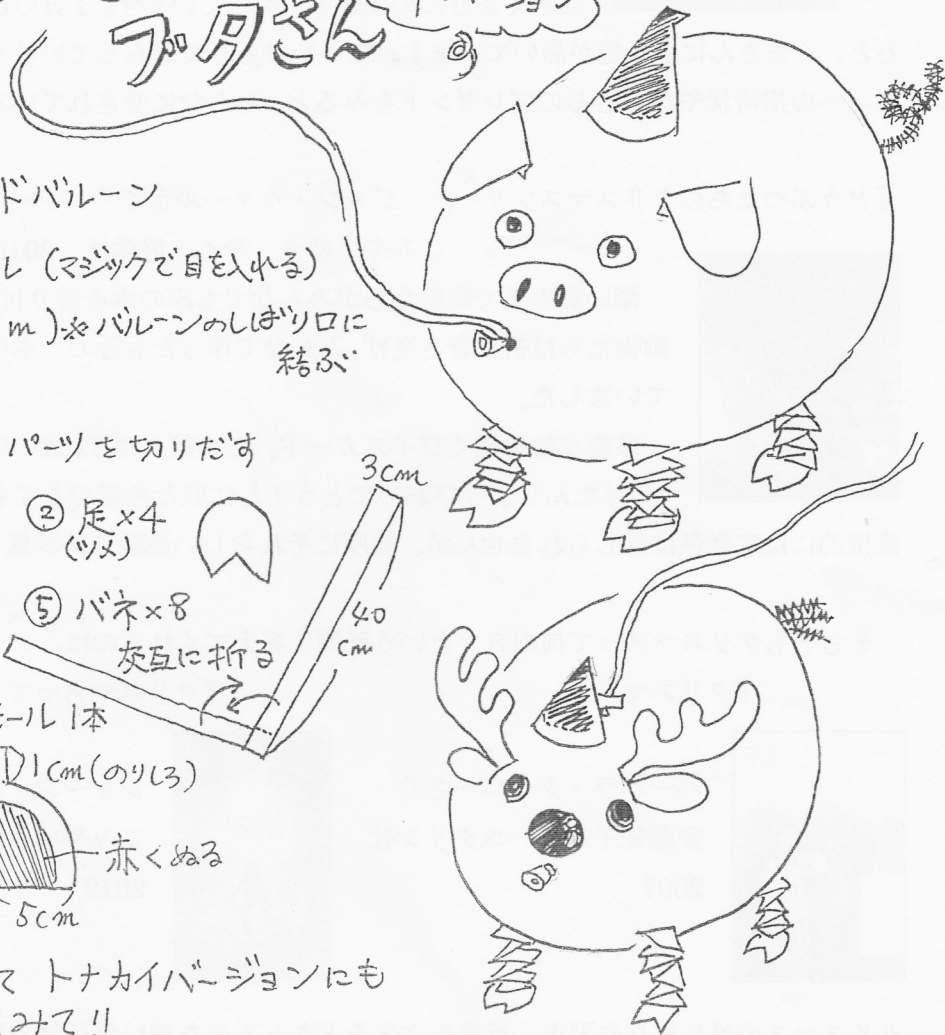 ブタさん
ドバルーン
レ(マジックで目を入れる)
m)※バルーンのしばり口に
結ぶ
パーツを切りだす
② 足×4
(ツメ)
3cm
⑤ バネ×8
40
cm
交互に折る
モール1本
1cm(のりしろ)
赤くぬる
5cm
て トナカイバージョンにも
みて!!